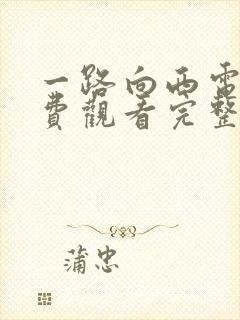 一路向西電
費觀看完整
蒲忠